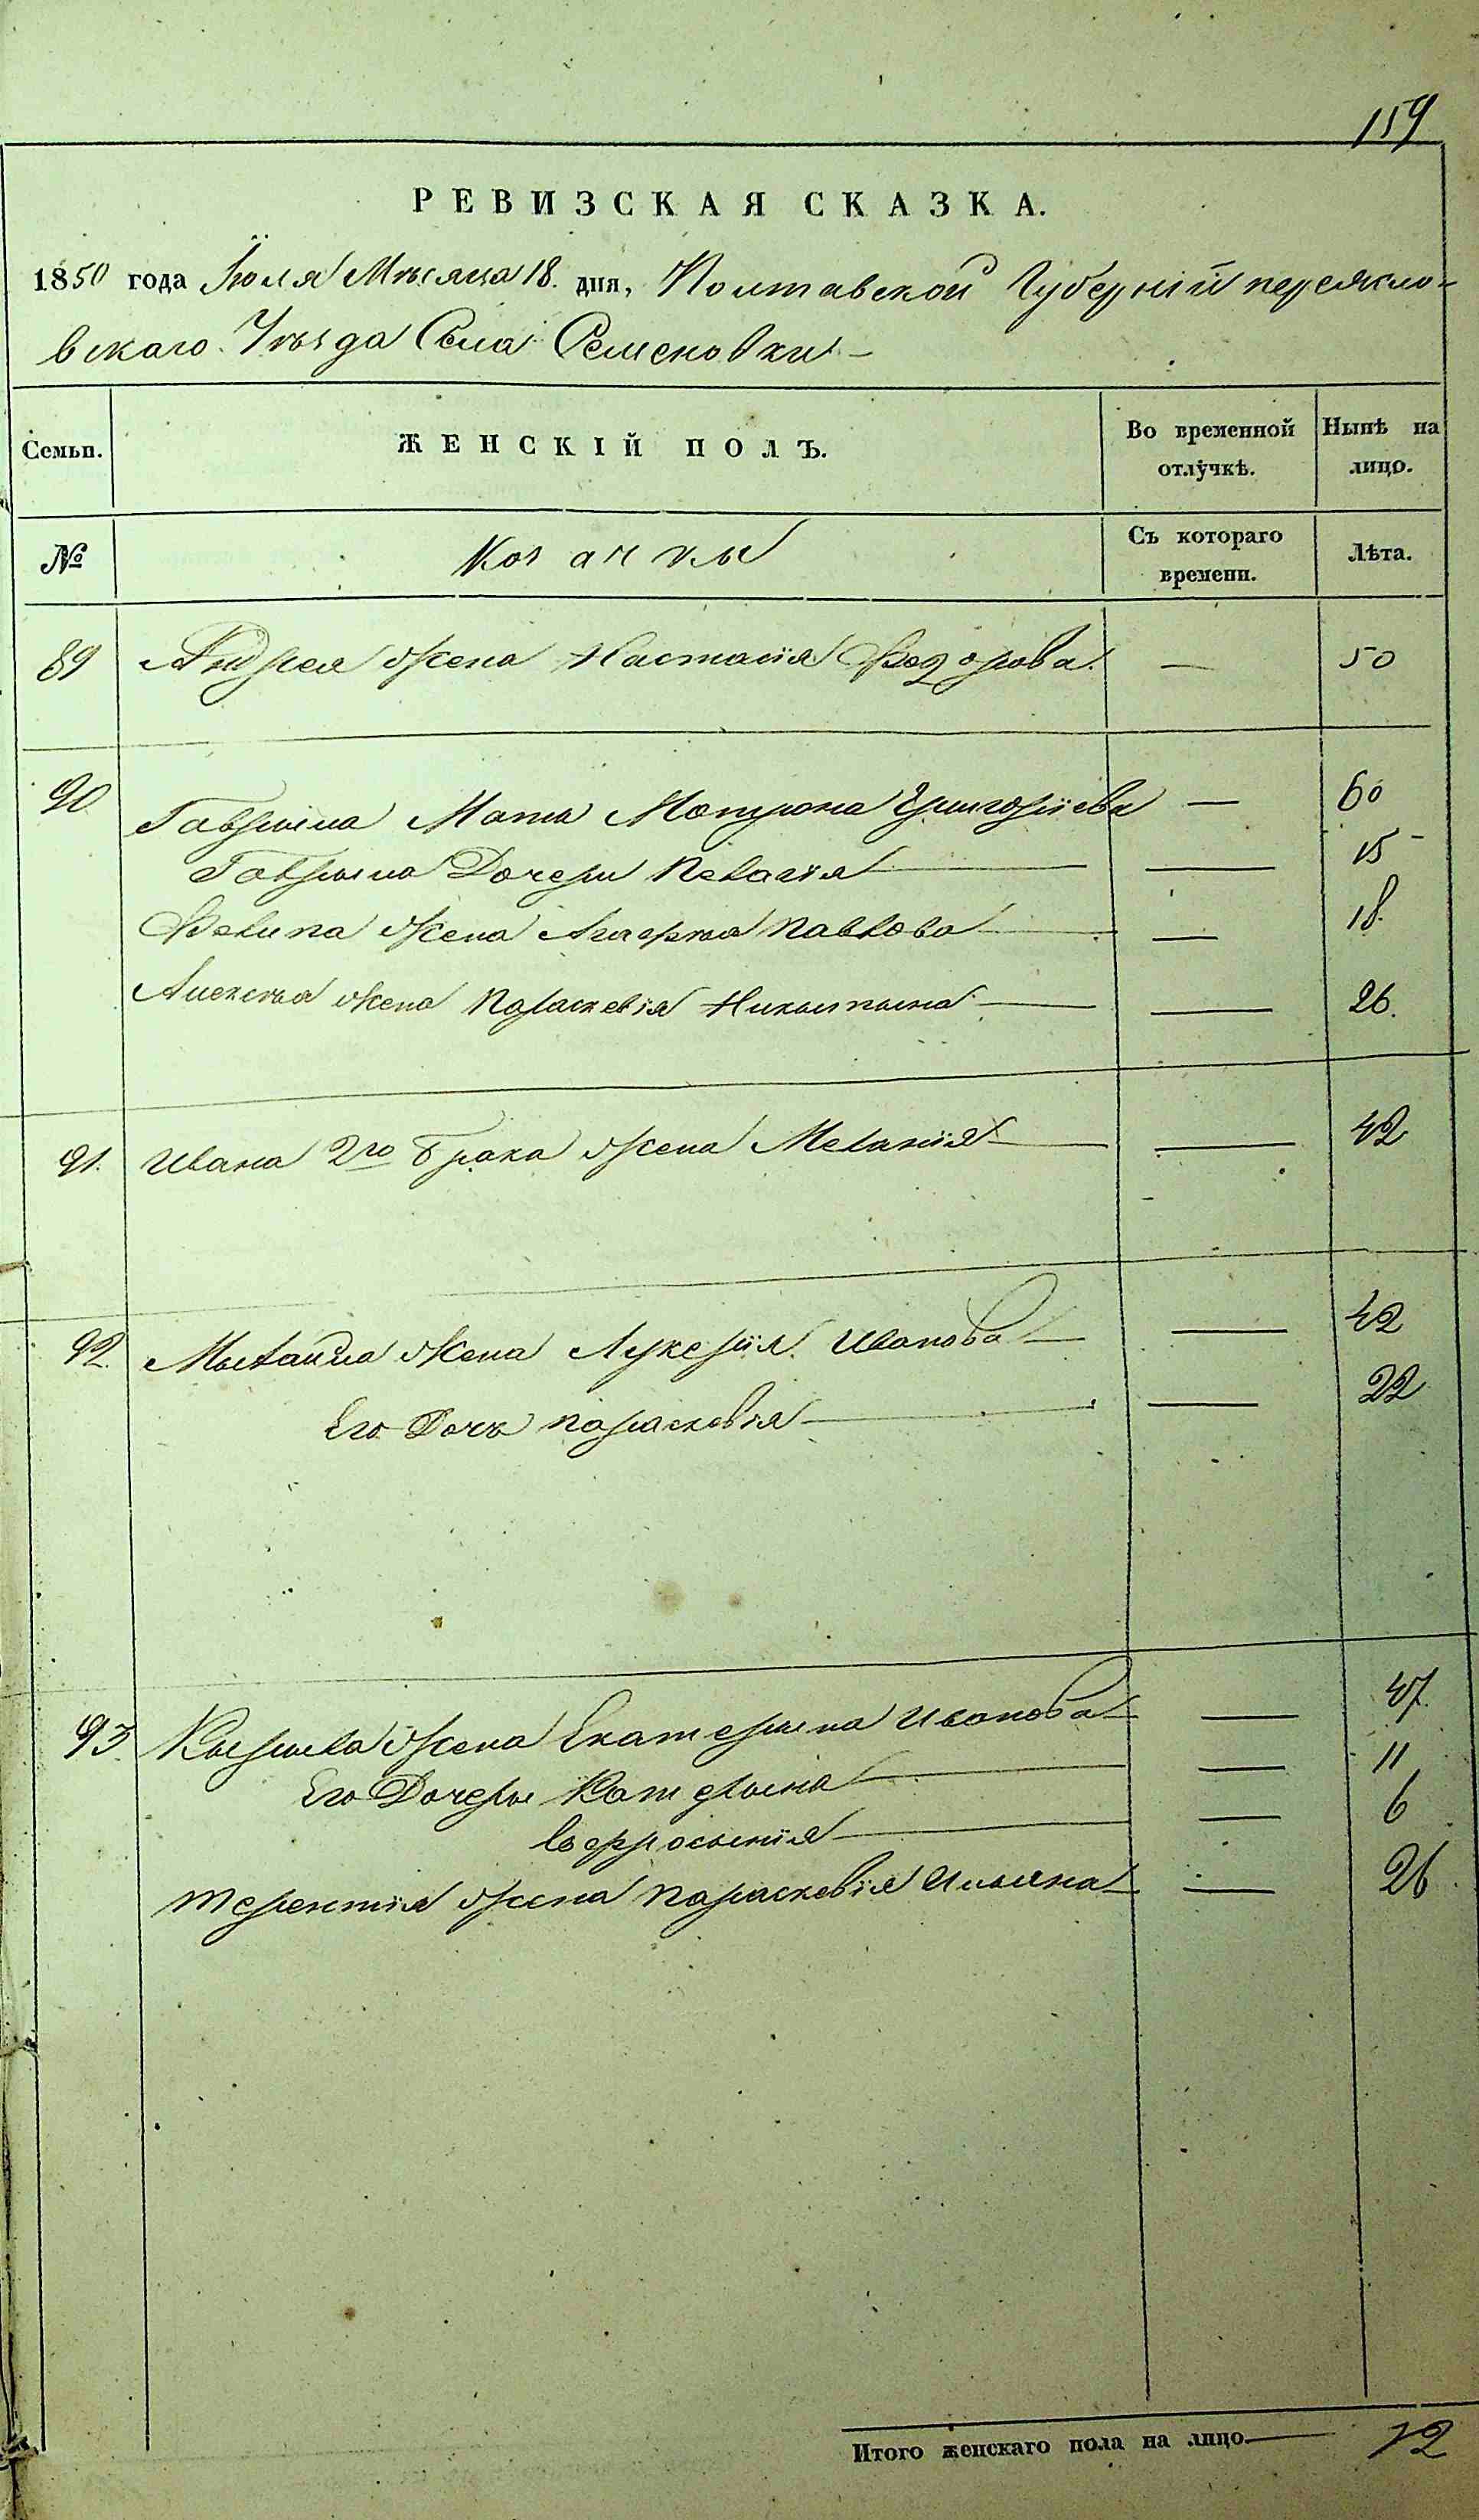 159
РЕВИЗСКАЯ СКАЗКА.
1850 года Іюля Мѣсяца 18. дня, Полтавской Губерній переясло-
вскаго Уѣзда Села Семеновки
Семьи. ЖЕНСКІЙ ПОЛЪ. Во временной отлучкѣ. Нынѣ на лицо.
№ Козачки Съ котораго времени. Лѣта.
89 Андрея Жена Настасія Федорова. — 50
90 Гаврыла Мать Мотрона Григоріева — 60
Гаврыла Дочери Пелагія — 15
Филипа Жена Агафія Павлова — 18.
Алексѣя Жена Параскевія Никытына — 26.
91. Ивана 2го брака Жена Меланія — 42
92. Мыхайла Жена Лукерія Иванова — 42
Его Дочь параскевія — 22
93. Кырыла Жена Екатерына Иванова — 47.
Его Дочеры Катерына — 11
Ефросынія — 6
терентія Жена параскевія Ильина — 26
Итого женскаго пола на лицо — 12